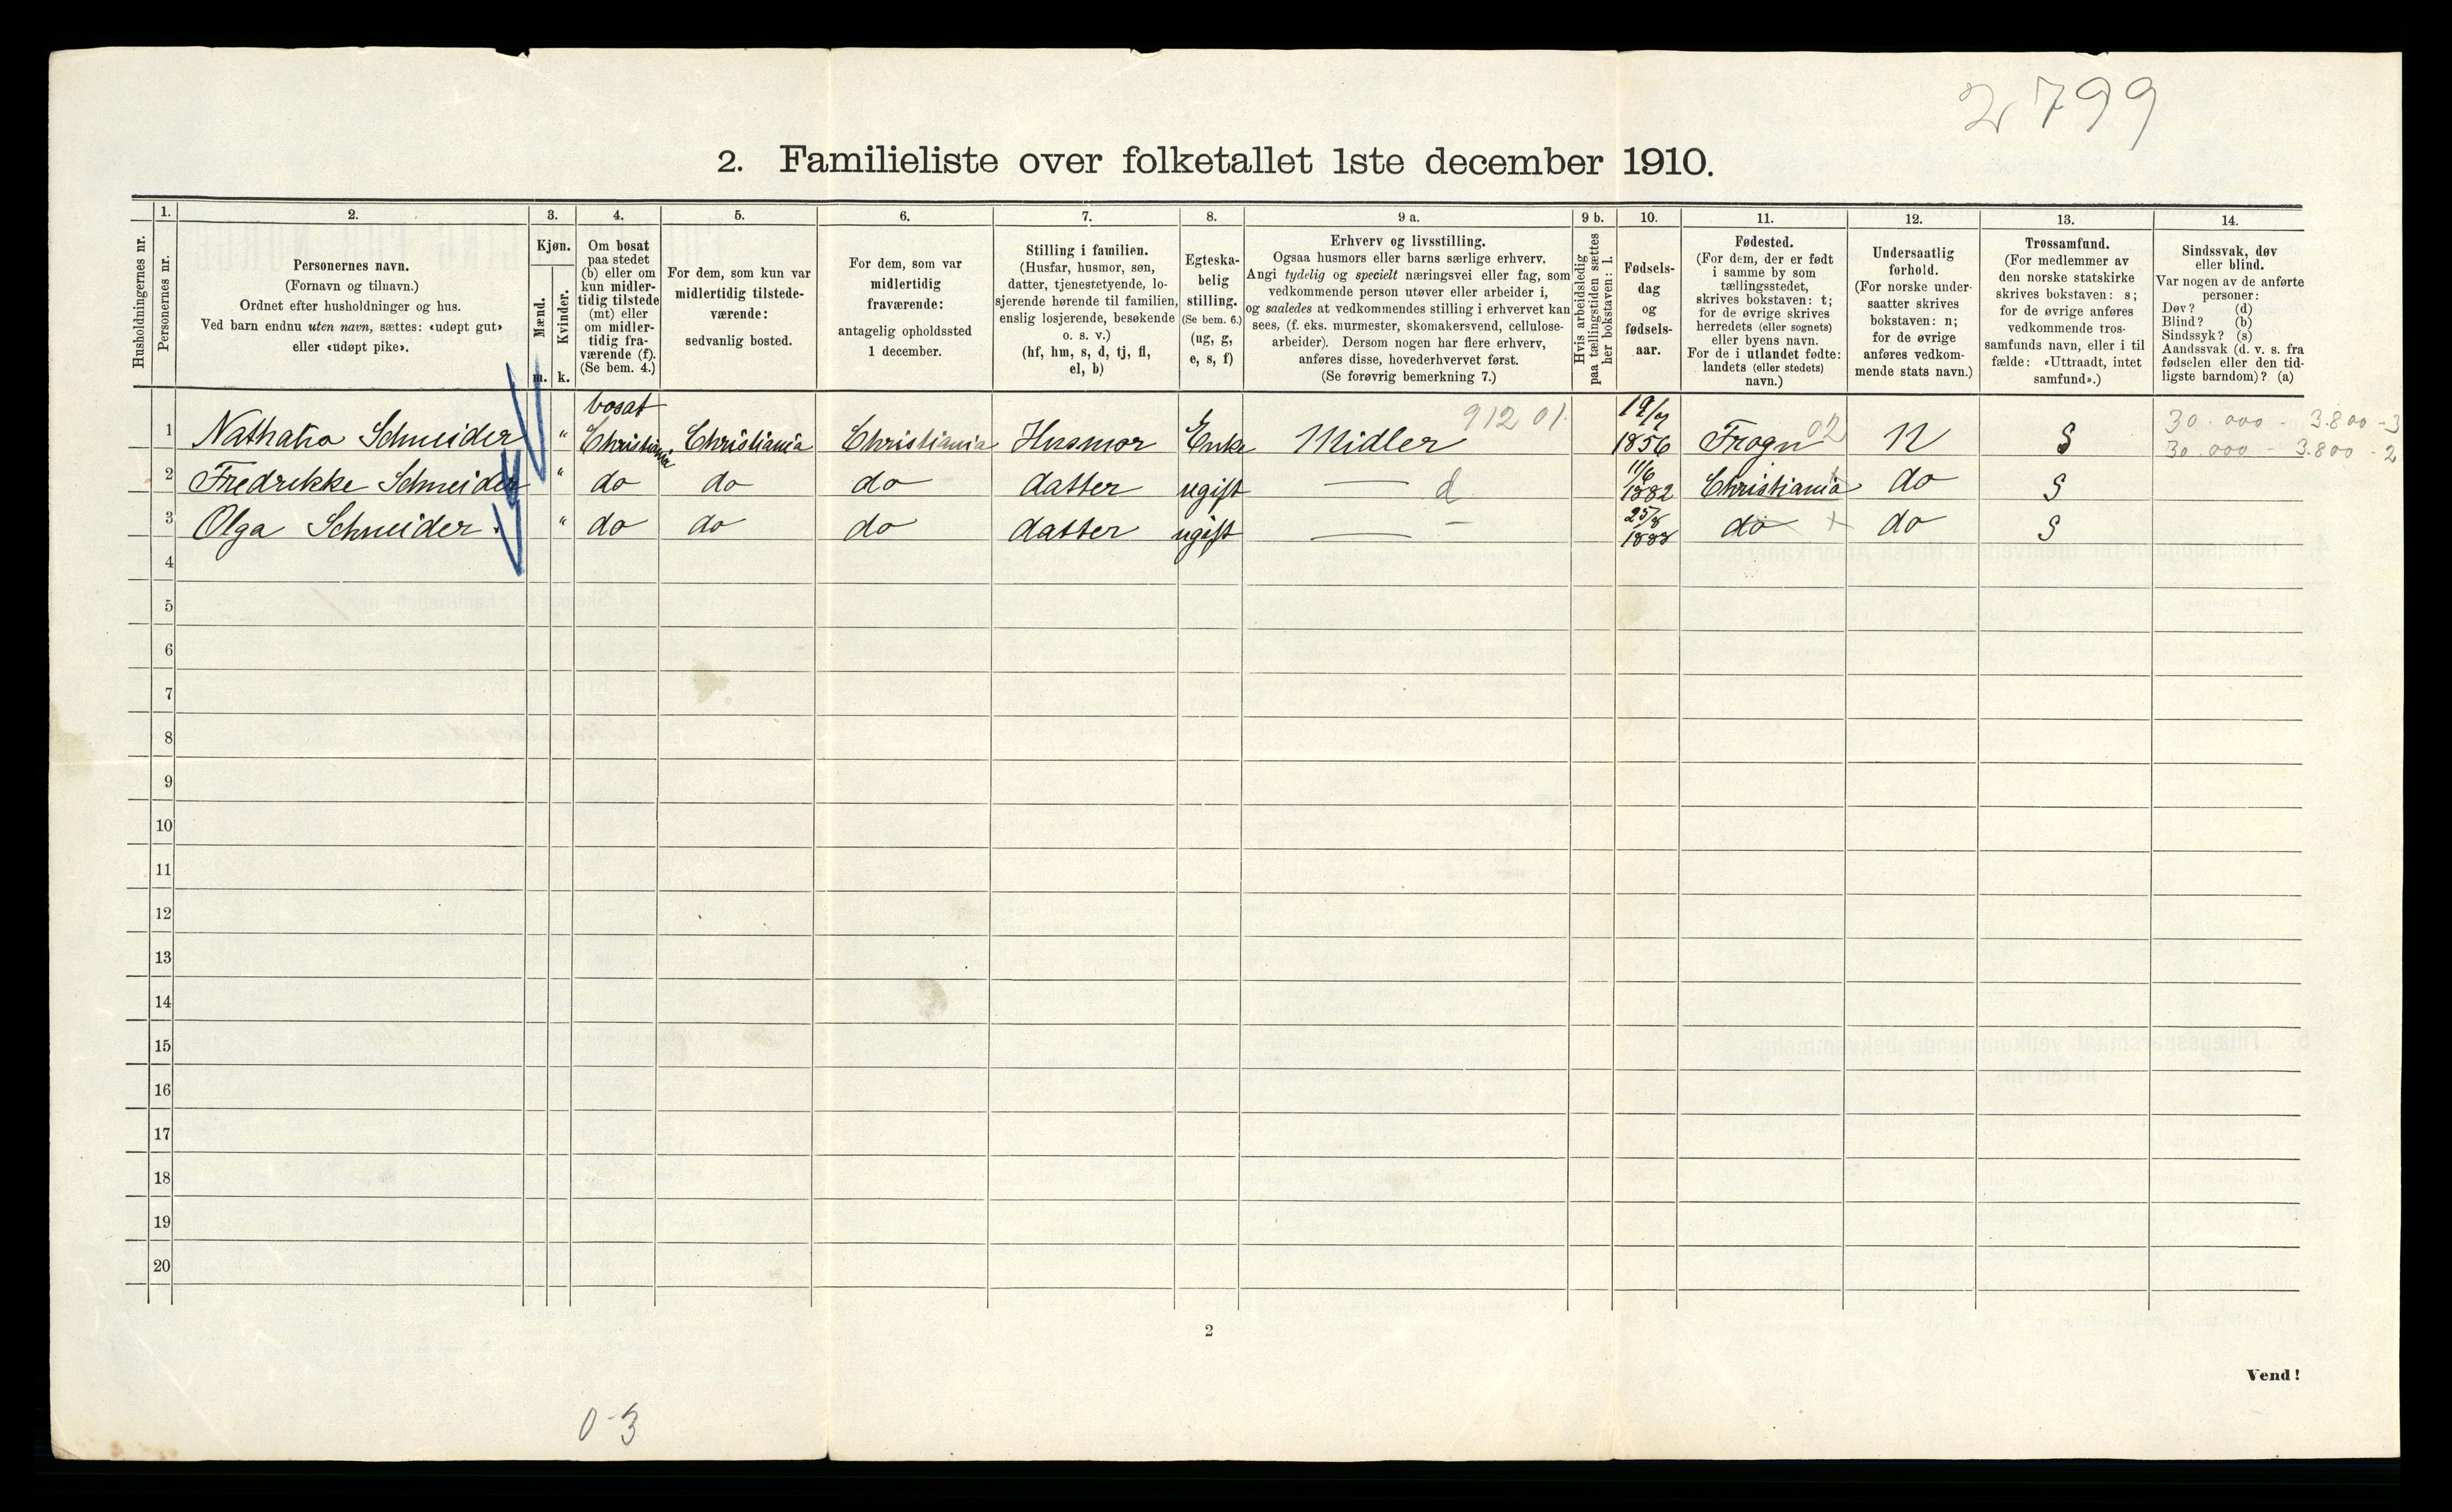 2799
2. Familieliste over folketallet 1ste december 1910.
Husholdningernes nr.
1.
Personernes nr.
2.
Personernes navn.
(Fornavn og tilnavn.)
Ordnet efter husholdninger og hus.
Ved barn endnu uten navn, sættes: «udøpt gut»
eller «udøpt pike».
3.
Kjøn.
Mænd.
Kvinder.
m.
k.
4.
Om bosat
paa stedet
(b) eller om
kun midler-
tidig tilstede
(mt) eller
om midler-
tidig fra-
værende (f).
(Se bem. 4.)
5.
For dem, som kun var
midlertidig tilstede-
værende:
sedvanlig bosted.
6.
For dem, som var
midlertidig
fraværende:
antagelig opholdssted
1 december.
7.
Stilling i familien.
(Husfar, husmor, søn,
datter, tjenestetyende, lo-
sjerende hørende til familien,
enslig losjerende, besøkende
o. s. v.)
(hf, hm, s, d, tj, fl,
el, b)
8.
Egteska-
belig
stilling.
(Se bem. 6.)
(ug, g,
e, s, f)
9 a.
Erhverv og livsstilling.
Ogsaa husmors eller barns særlige erhverv.
Angi tydelig og specielt næringsvei eller fag, som
vedkommende person utøver eller arbeider i,
og saaledes at vedkommendes stilling i erhvervet kan
sees, (f. eks. murmester, skomakersvend, cellulose-
arbeider). Dersom nogen har flere erhverv,
anføres disse, hovederhvervet først.
(Se forøvrig bemerkning 7.)
9 b.
Hvis arbeidsledig
paa tællingstiden sættes
her bokstaven: l.
10.
Fødsels-
dag
og
fødsels-
aar.
11.
Fødested.
(For dem, der er født
i samme by som
tællingsstedet,
skrives bokstaven: t;
for de øvrige skrives
herredets (eller sognets)
eller byens navn.
For de i utlandet fødte:
landets (eller stedets)
navn.)
12.
Undersaatlig
forhold.
(For norske under-
saatter skrives
bokstaven: n;
for de øvrige
anføres vedkom-
mende stats navn.)
13.
Trossamfund.
(For medlemmer av
den norske statskirke
skrives bokstaven: s;
for de øvrige anføres
vedkommende tros-
samfunds navn, eller i til
fælde: «Uttraadt, intet
samfund».)
14.
Sindssvak, døv
eller blind.
Var nogen av de anførte
personer:
Døv? (d)
Blind? (b)
Sindssyk? (s)
Aandssvak (d. v. s. fra
fødselen eller den tid-
ligste barndom)? (a)
1 Nathalia Schneider " bosat Christiania Christiania Christiania Husmor Enke Midler 912 01. 19/7 1856 Frogn 02 N S 30.000 - 3.800 - 3
30.000 - 3.800 - 2
2 Fredrikke Schneider " do do do datter ugift — d 11/6 1882 Christiania do S
3 Olga Schneider. " do do do datter ugift — – 25/8 1888 do do S
4
5
6
7
8
9
10
11
12
13
14
15
16
17
18
19
20
2
Vend!
0-3